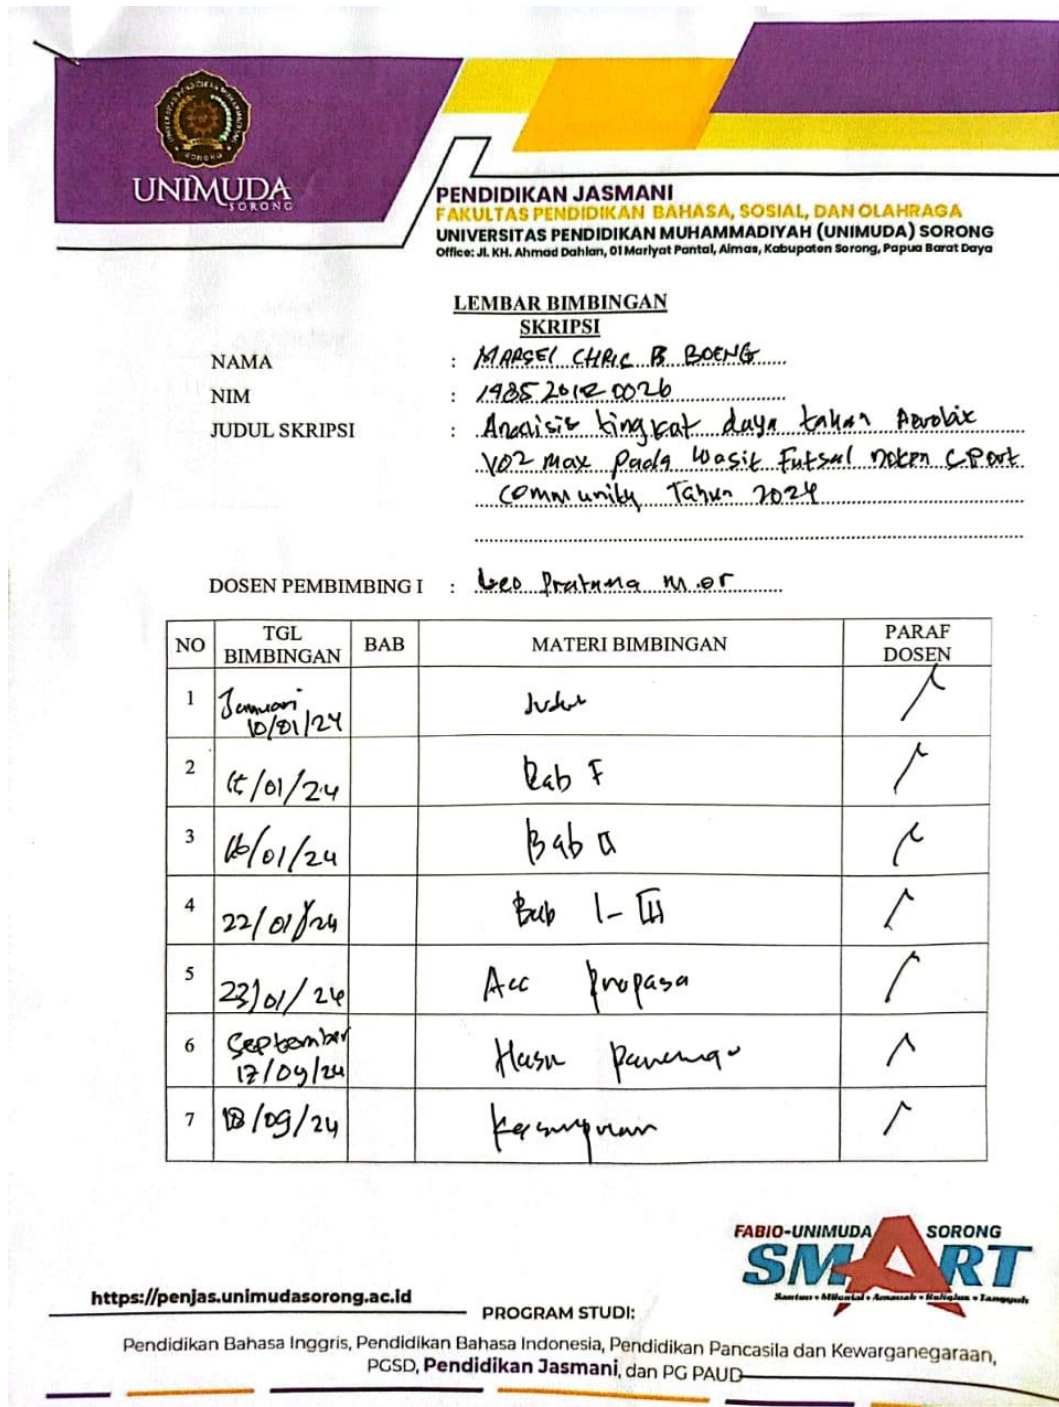 UNIMUDA
SORONG
PENDIDIKAN JASMANI
FAKULTAS PENDIDIKAN BAHASA, SOSIAL, DAN OLAHRAGA
UNIVERSITAS PENDIDIKAN MUHAMMADIYAH (UNIMUDA) SORONG
Office: Jl. KH. Ahmad Dahlan, 01 Mariyat Pantai, Aimas, Kabupaten Sorong, Papua Barat Daya
LEMBAR BIMBINGAN
SKRIPSI
NAMA : MARSEl CHRIC B BOENG
NIM : 148520120026
JUDUL SKRIPSI : Analisis tingkat daya tahan Aerobix
VO2 max pada Wasit Futsal noken SPort
Community Tahun 2024
DOSEN PEMBIMBING I : Leo Pratama M.or
NO TGL BIMBINGAN BAB MATERI BIMBINGAN PARAF DOSEN
1 Januari 10/01/24 Judul
2 15/01/24 Bab I
3 16/01/24 Bab II
4 22/01/24 Bab I-III
5 23/01/24 Acc Propasa
6 September 17/09/24 Hasil
7 18/09/24 Kesimpulan
FABIO-UNIMUDA SORONG
SMART
Santun • Milenial • Amanah • Religius • Tangguh
https://penjas.unimudasorong.ac.id
PROGRAM STUDI:
Pendidikan Bahasa Inggris, Pendidikan Bahasa Indonesia, Pendidikan Pancasila dan Kewarganegaraan,
PGSD, Pendidikan Jasmani, dan PG PAUD